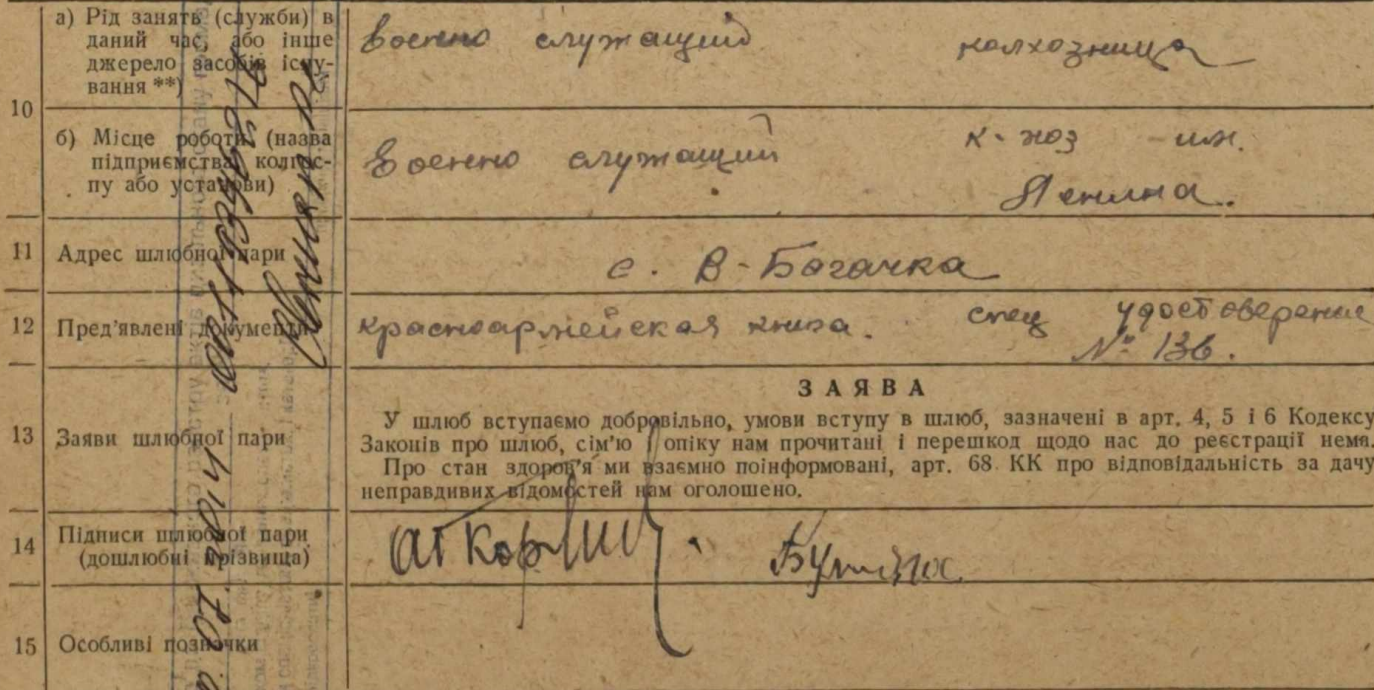 10
а) Рід занять (служби) в
даний час, або інше
джерело засобів існу-
вання **)
военно служащий колхозница
б) Місце роботи (назва
підприємства, колгос-
пу або установи)
военно служащий к-хоз им.
Ленина.
11 Адрес шлюбної пари с. В-Багачка
12 Пред'явлені документи красноармейская книга. спец удостоверение
№ 136.
13 Заяви шлюбної пари
ЗАЯВА
У шлюб вступаємо добровільно, умови вступу в шлюб, зазначені в арт. 4, 5 і 6 Кодексу
Законів про шлюб, сім'ю і опіку нам прочитані і перешкод щодо нас до реєстрації нема.
Про стан здоров'я ми взаємно поінформовані, арт. 68 КК про відповідальність за дачу
неправдивих відомостей нам оголошено.
14 Підписи шлюбної пари
(дошлюбні прізвища)
15 Особливі позначки